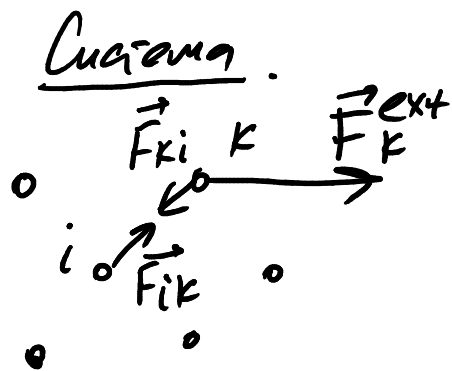 Система.
F⃗ki k F⃗k^ext
i F⃗ik